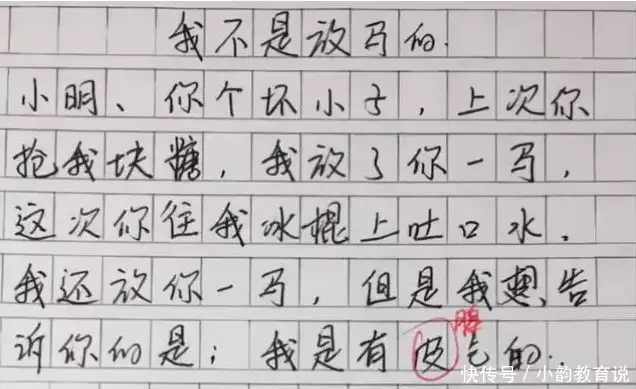 我不是放马的.
小明、你个坏小子，上次你
抢我块糖，我放了你一马，
这次你往我冰棍上吐口水，
我还放你一马，但是我想告
诉你的是；我是有皮气的..
脾
快传号／小韵教育说